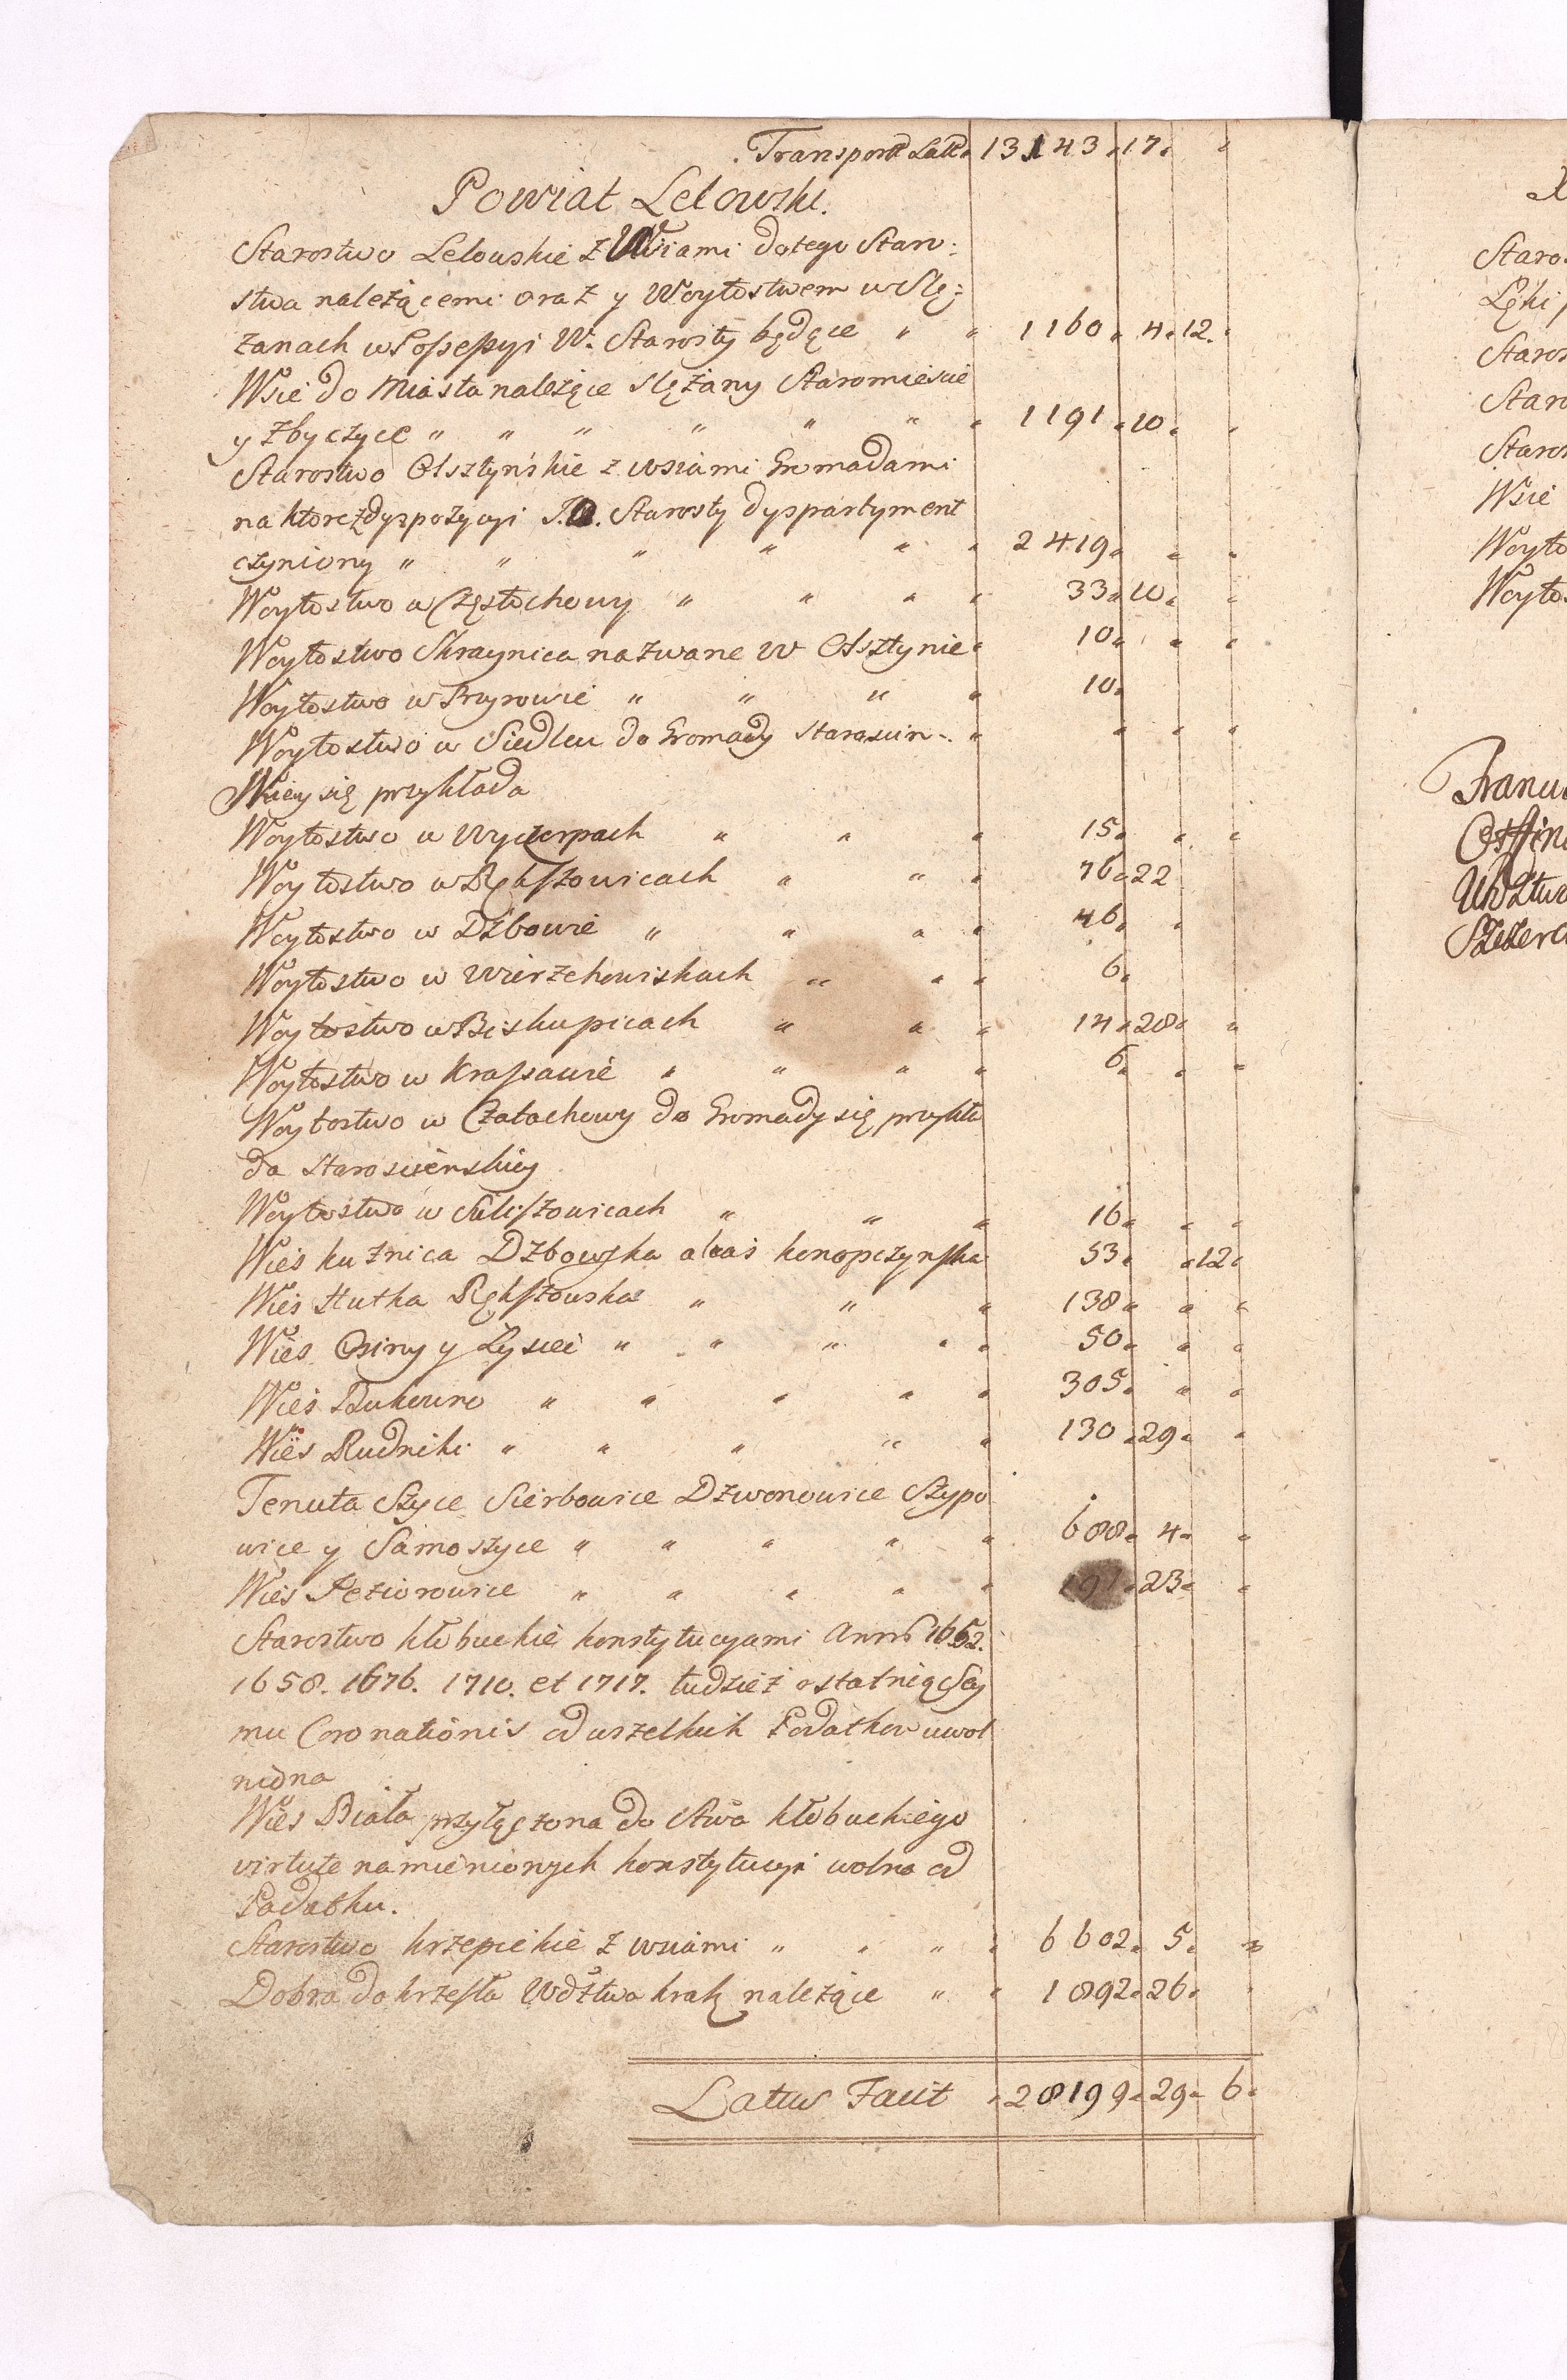 Transport Latt. 13143 „ 17 „ „
Powiat Lelowski.
Starostwo Lelowskie z Wsiami do tego Staro:
stwa należącemi oraz y Woytostwem w Slę:
zanach w Possessyi W. Starosty będące „ „ 1160 „ 4 „ 12. „
Wsie do Miasta należące Slężany Staromieście
y Zbyczyce „ „ „ „ „ „ „ 1191 „ 10 „ „
Starostwo Olsztyńskie z wsiami Gromadami
na ktore z dyspozycyi J.O. Starosty dyspartyment
czyniony „ „ „ „ „ „ 2419 „ „ „
Woytostwo w Częstochowy „ „ „ „ 33 „ 10 „ „
Woytostwo Skraynica nazwane w Olsztynie „ 10 „ „ „
Woytostwo w Przyrowie „ „ „ „ 10 „
Woytostwo w Siedlcu do Gromady Starościn- „ „ „ „
skiey się przykłada
Woytostwo w Wyczerpach „ „ „ 15 „ „ „
Woytostwo w Rększowicach „ „ „ 76 „ 22
Woytostwo w Dźbowie „ „ „ „ 46 „ „
Woytostwo w Wierzchowiskach „ „ „ 6 „
Woytostwo w Biskupicach „ „ „ 14 „ 28 „ „
Woytostwo w Krassawie „ „ „ „ 6 „ „ „
Woytostwo w Czatachowy do Gromady się przykła
da Starościenskiey
Woytostwo w Suliszowicach „ „ „ 16 „ „ „
Wieś kuznica Dzbowska alias konopczynska 53 „ „ 12 „
Wieś Hutka Rększowska „ „ „ 138 „ „ „
Wieś Osiny y Łysiec „ „ „ „ „ 50 „ „ „
Wieś Bukowno „ „ „ „ „ 305 „ „ „
Wieś Rudniki „ „ „ „ „ 130 „ 29 „ „
Tenuta Szyce Sierbowice Dzwonowice Szypo
wice y Samoszyce „ „ „ „ „ 688 „ 4 „ „
Wieś Jeziorowice „ „ „ „ „ 191 „ 23 „ „
Starostwo kłobuckie konstytucyami Anno 1652.
1658. 1676. 1710. et 1717. tudzież ostatnią Sey
mu Coronationis od wszelkich Podatkow uwol
niona
Wieś Biała przyłączona do Stwa kłobuckiego
virtute namienionych konstytucyi wolna od
Podatku.
Starostwo krzepickie z wsiami „ „ „ „ 6602 „ 5 „ „
Dobra do krzesła Wdztwa krak należące „ „ 1892 „ 26 „ „
Latus Facit „ 28199 „ 29 „ 6 „
Staro
Łęki
Staros
Staro
Staros
Wsie
Woyto
Woytos